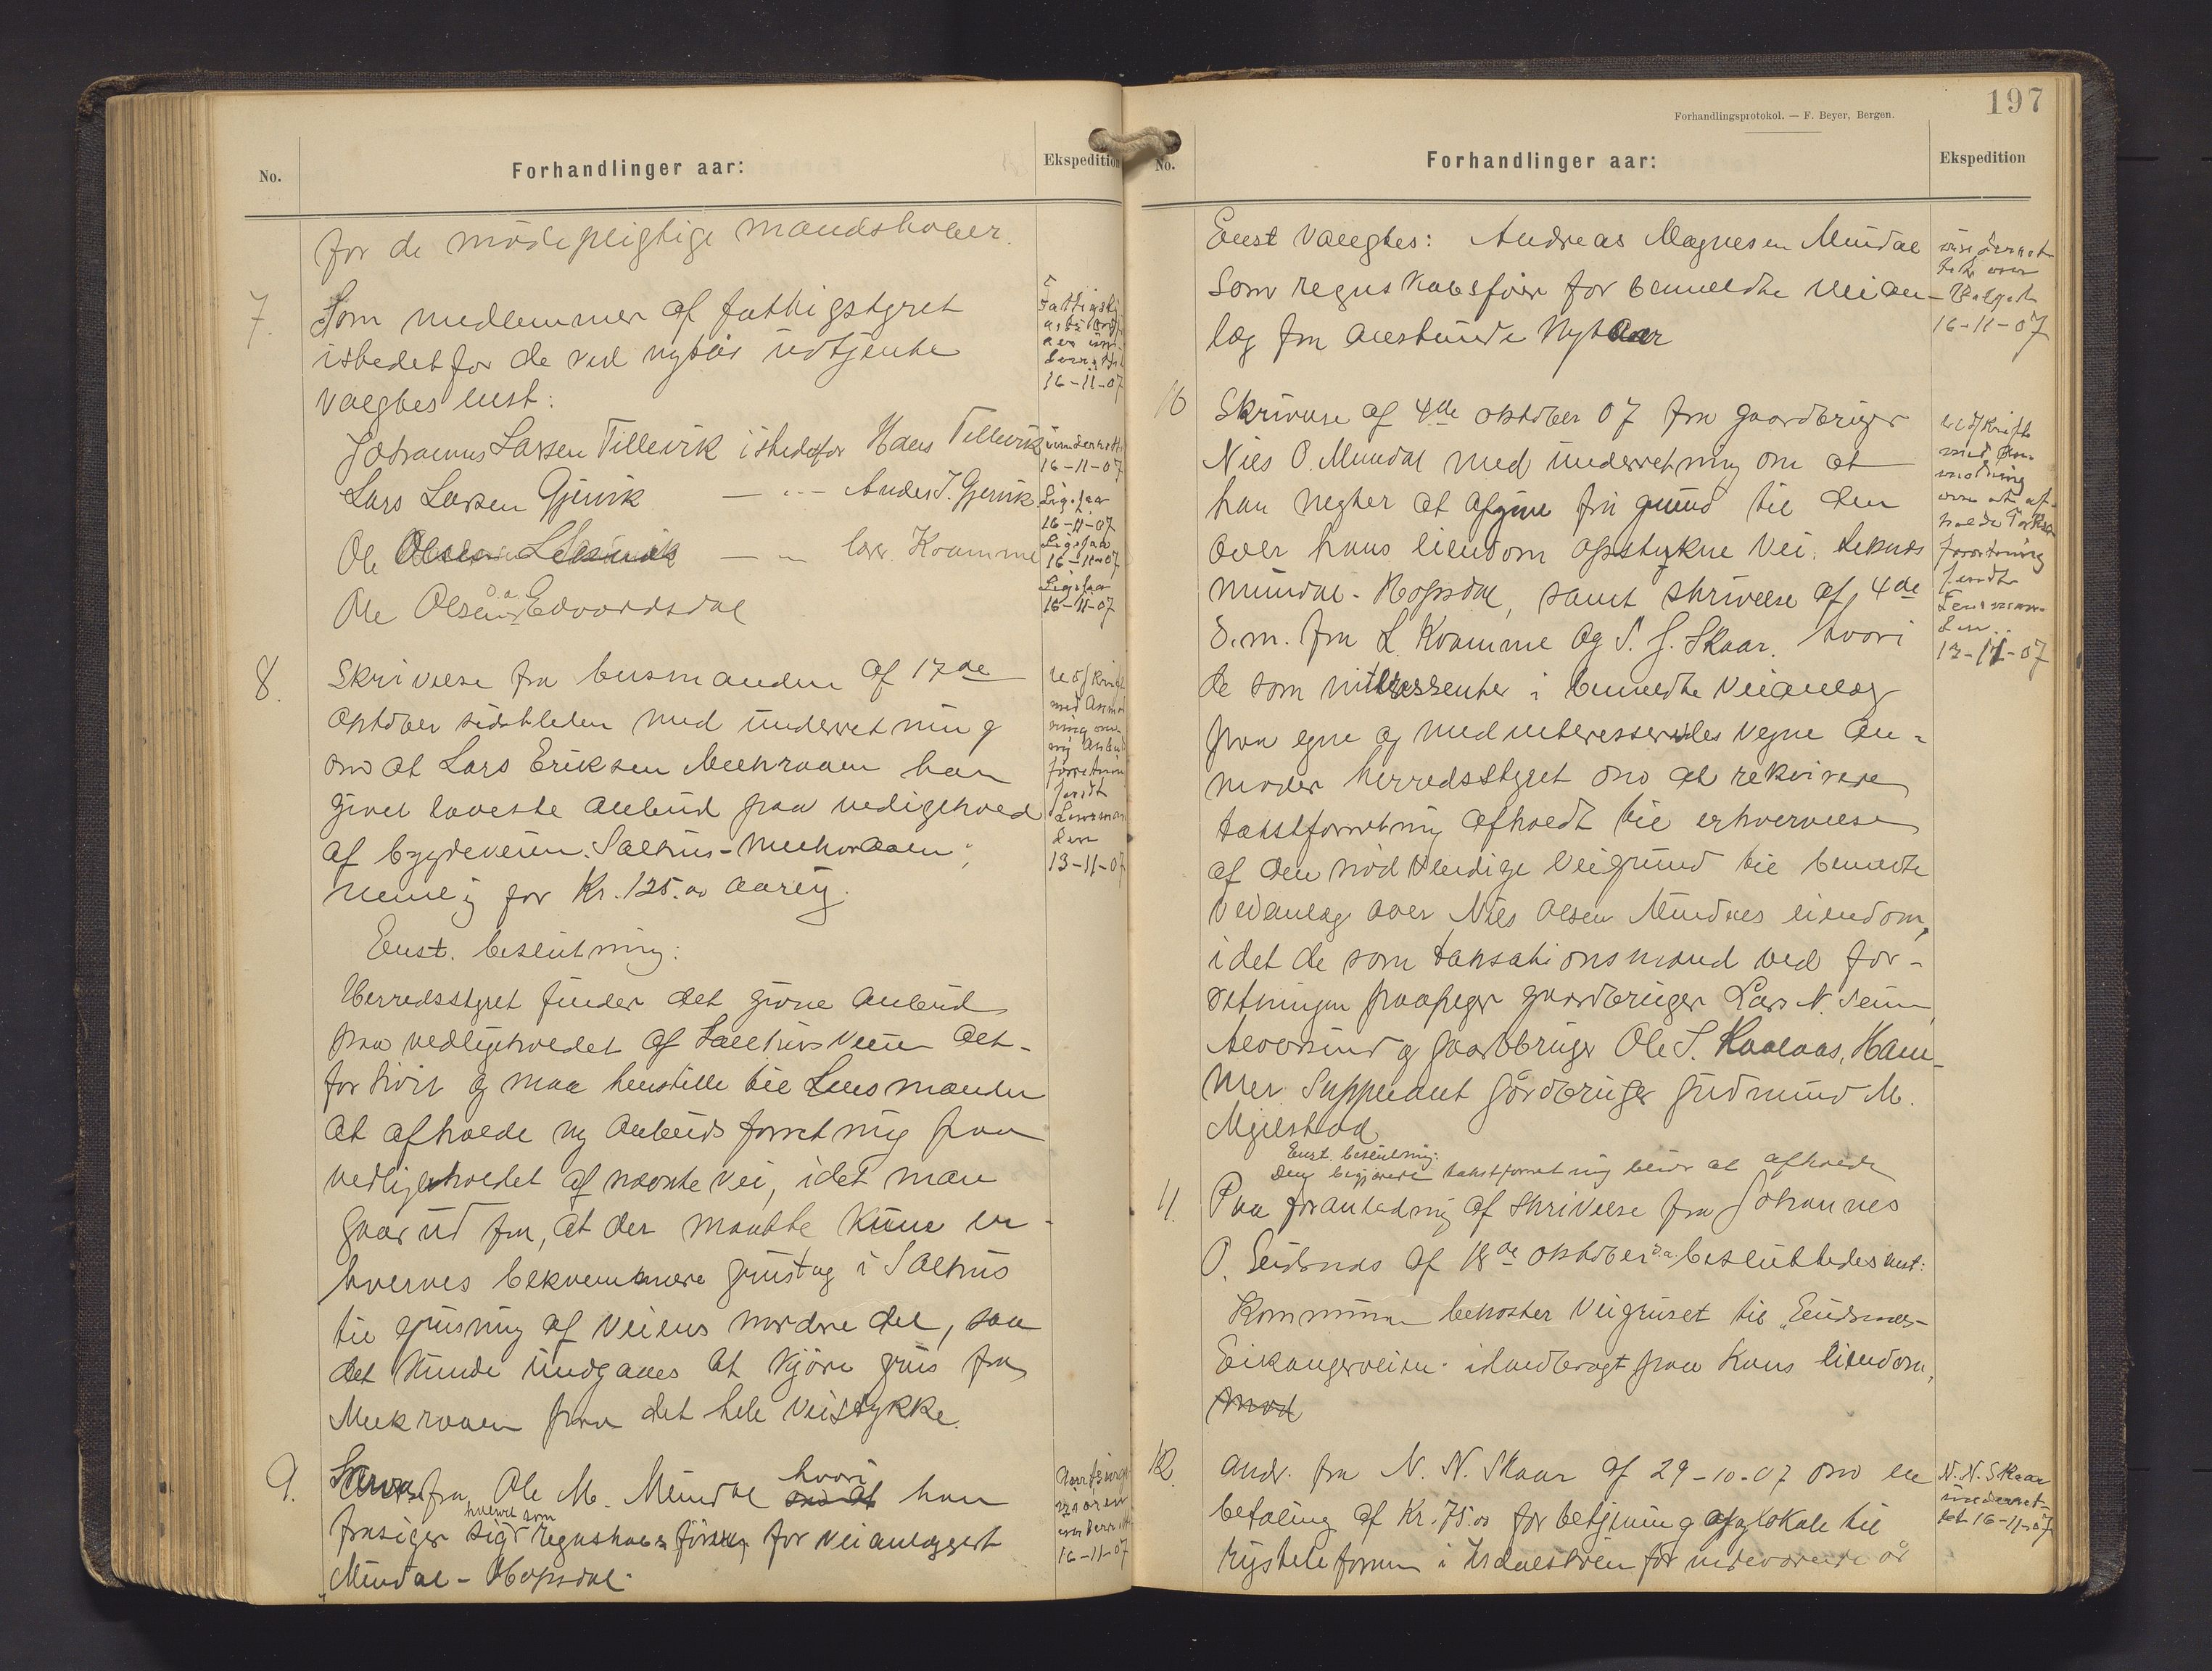 No.
Forhandlinger aar:
Ekspedition
for de mødepligtige mandskaber.
7.
Som medlemmer af fattigstyret
istedetfor de ved nytår udtjente
valgtes enst:
Johannes Larsen Tillevik istedetfor Hans Tillevik
Lars Larsen Gjervik — " — Anders J. Gjervik
Ole Olsen — " — lærer Kvamme
Ole Olsen Edvardsdal
16-11-07
underrettet
16-11-07
Ligesaa
16-11-07
Ligesaa
16-11-07
Ligesaa
16-11-07
8.
Skrivelse fra lensmanden af 17de
oktober sidstleden med underretning
om at Lars Eriksen Melkraaen har
givet laveste anbud paa vedligehold
af bygdeveien Salhus-Melkraaen,
nemlig for Kr. 125.00 aarlig.
Enst. beslutning:
Herredsstyret finder det givne anbud
paa vedligeholdet af Salhusveien alt-
for høit og maa henstille til Lensmanden
at afholde ny anbudsforretning paa
vedligeholdet af nævnte vei, idet man
gaar ud fra, at der maatte kunne er-
hverves bekvemmere grustag i Salhus
til grusning af veiens nordre del, saa
det kunde undgaaes at kjøre grus fra
Melkraaen paa det hele veistykke.
Lensman
den
13-11-07
9.
Skriv. fra Ole M. Mundal om at hvori han
frasiger sig hvervet som regnskabsfører for veianlægget
"Mundal-Hopsdal."
16-11-07
Forhandlingsprotokol. — F. Beyer, Bergen.
197
No.
Forhandlinger aar:
Ekspedition
Enst valgtes: Andreas Magnesen Mundal
som regnskabsfører for bemeldte veian-
læg fra anstundende Nytaar
Valget
16-11-07
10
Skrivelse af 4de oktober 07 fra gaardbruger
Nils O. Mundal med underretning om at
han negter at afgive fri grund til den
over hans eiendom opstukne vei Leknes
Mundal-Hopsdal, samt skrivelse af 4de
d.m. fra L. Kvamme og S. J. Skaar, hvori
de som interessenter i bemeldte veianlæg
paa egne og medinteresseredes vegne an-
moder herredsstyret om at rekvirere
takstforretning afholdt til erhvervelse
af den nødvendige veigrund til bemeldte
veianlæg over Nils Olsen Mundals eiendom,
idet de som taksationsmænd ved for-
retningen paapeger gaardbruger Lars N. Seim,
Alversund og gaardbruger Ole S. Kaalaas, Ham-
mer Suppleant gårdbruger Gudmund M.
Mjelstad
Enst. beslutning:
Den begjærede takstforretning blir at afholde
udskrift
med An-
modning
om at af-
holde Takst
forretning
sendt
Lensman-
den
13-11-07
11.
Paa foranledning af skrivelse fra Johannes
O. Eidsnes af 18de oktober d.a. besluttedes enst:
Kommunen bekoster veigruset til "Eidsnes-
Eikangerveien" ilandbragt paa hans eiendom,
mod
12
Andr. fra N. N. Skaar af 29-10-07 om en
betaling af Kr. 75.00 for betjening af og lokale til
rigstelefonen i Isdalstøen for indeværende år
N. N. Skaar
underret-
tet 16-11-07